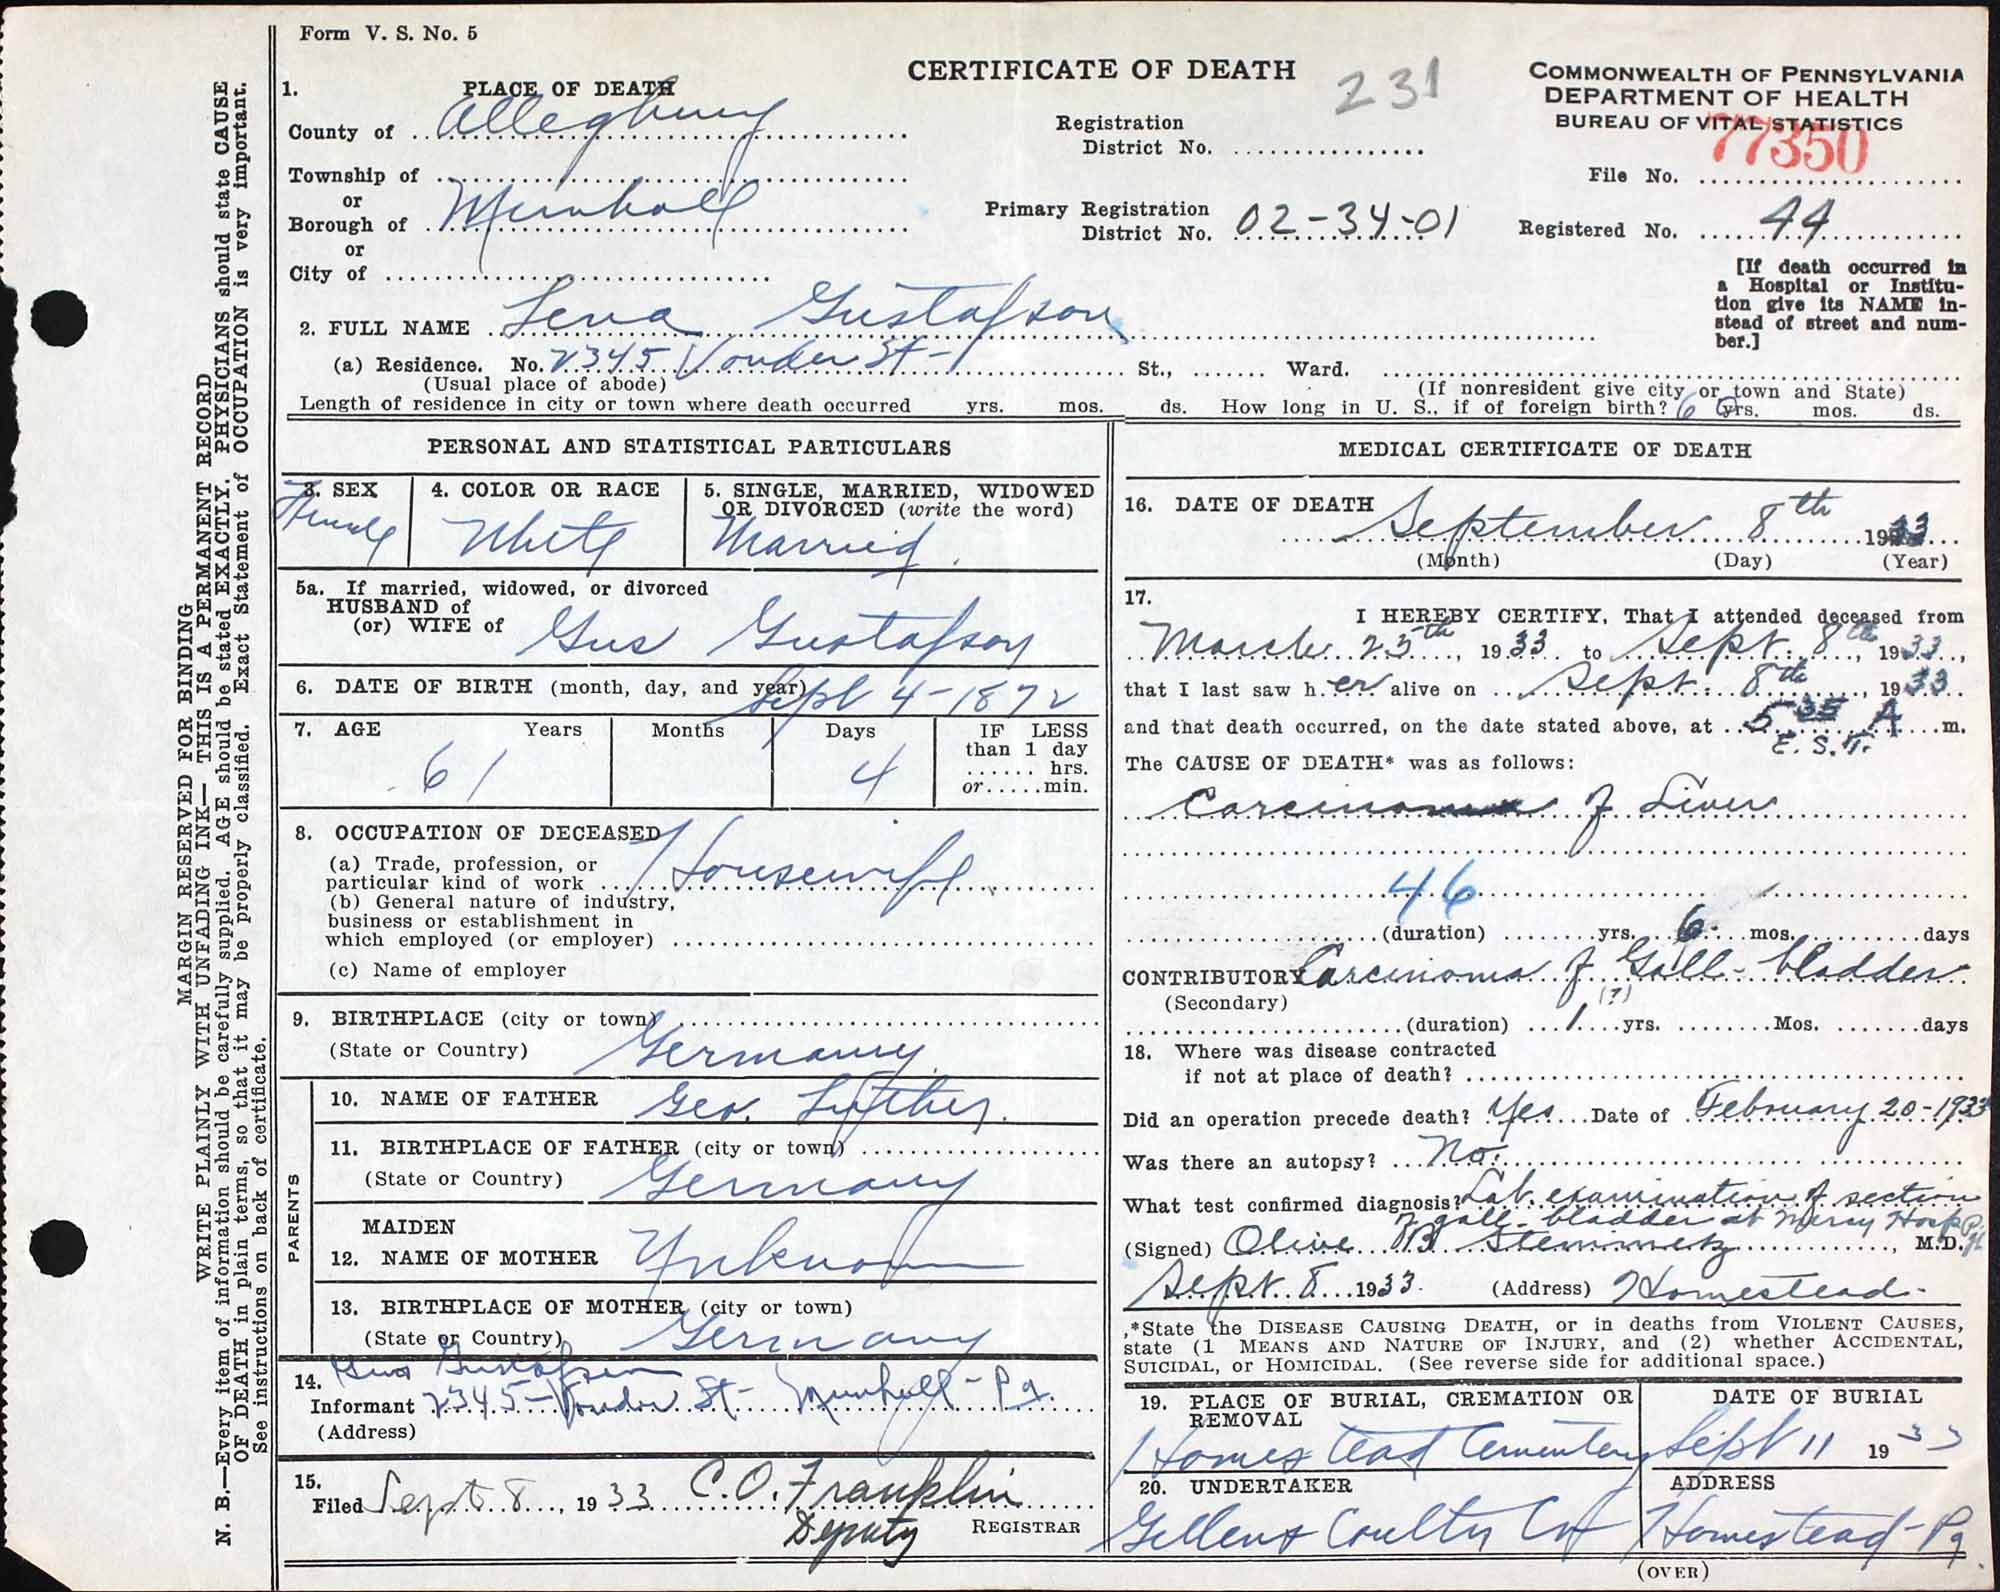 Form V. S. No. 5
CERTIFICATE OF DEATH
231
COMMONWEALTH OF PENNSYLVANIA
DEPARTMENT OF HEALTH
BUREAU OF VITAL STATISTICS
77350
File No.
Registered No. 44
Registration
District No.
Primary Registration
District No. 02-34-01
1. PLACE OF DEATH
County of Allegheny
Township of
or
Borough of Munhall
or
City of
[If death occurred in
a Hospital or Institu-
tion give its NAME in-
stead of street and num-
ber.]
2. FULL NAME Lena Gustafson
(a) Residence. No. 2345 Vonder St- St., Ward.
(Usual place of abode) (If nonresident give city or town and State)
Length of residence in city or town where death occurred yrs. mos. ds. How long in U. S., if of foreign birth? 60 yrs. mos. ds.
PERSONAL AND STATISTICAL PARTICULARS
3. SEX Female
4. COLOR OR RACE White
5. SINGLE, MARRIED, WIDOWED
OR DIVORCED (write the word)
Married
5a. If married, widowed, or divorced
HUSBAND of
(or) WIFE of Gus Gustafson
6. DATE OF BIRTH (month, day, and year) Sept 4-1872
7. AGE Years Months Days IF LESS
than 1 day
hrs.
or min.
61 4
8. OCCUPATION OF DECEASED
(a) Trade, profession, or
particular kind of work Housewife
(b) General nature of industry,
business or establishment in
which employed (or employer)
(c) Name of employer
9. BIRTHPLACE (city or town)
(State or Country) Germany
PARENTS
10. NAME OF FATHER Geo.
11. BIRTHPLACE OF FATHER (city or town)
(State or Country) Germany
MAIDEN
12. NAME OF MOTHER Unknown
13. BIRTHPLACE OF MOTHER (city or town)
(State or Country) Germany
14. Gus Gustafson
Informant 2345-Vonder St- Munhall-Pa.
(Address)
15.
Filed Sept 8, 1933 C. O. Franklin
Deputy REGISTRAR
MEDICAL CERTIFICATE OF DEATH
16. DATE OF DEATH September 8th 1933
(Month) (Day) (Year)
17.
I HEREBY CERTIFY, That I attended deceased from
March 23th, 1933 to Sept. 8th, 1933,
that I last saw her alive on Sept. 8th, 1933
and that death occurred, on the date stated above, at 5 35 A m.
E. S. T.
The CAUSE OF DEATH* was as follows:
Carcinoma of Liver
46
(duration) yrs. 6 mos. days
CONTRIBUTORY Carcinoma of Gall-bladder
(Secondary) (?)
(duration) 1 yrs. Mos. days
18. Where was disease contracted
if not at place of death?
Did an operation precede death? Yes Date of February 20-1933
Was there an autopsy? No.
What test confirmed diagnosis? Lab. examination of section
of gall-bladder at Mercy Hosp
(Signed) Olive B Steinmetz, M.D.
Sept. 8 1933. (Address) Homestead-
*State the DISEASE CAUSING DEATH, or in deaths from VIOLENT CAUSES,
state (1 MEANS AND NATURE OF INJURY, and (2) whether ACCIDENTAL,
SUICIDAL, or HOMICIDAL. (See reverse side for additional space.)
19. PLACE OF BURIAL, CREMATION OR
REMOVAL
Homestead Cemetery
DATE OF BURIAL
Sept 11 1933
20. UNDERTAKER
Gillen & Coulter Co
ADDRESS
Homestead-Pa.
(OVER)
MARGIN RESERVED FOR BINDING
WRITE PLAINLY WITH UNFADING INK—THIS IS A PERMANENT RECORD
N. B.—Every item of information should be carefully supplied. AGE should be stated EXACTLY. PHYSICIANS should state CAUSE
OF DEATH in plain terms, so that it may be properly classified. Exact Statement of OCCUPATION is very important.
See instructions on back of certificate.